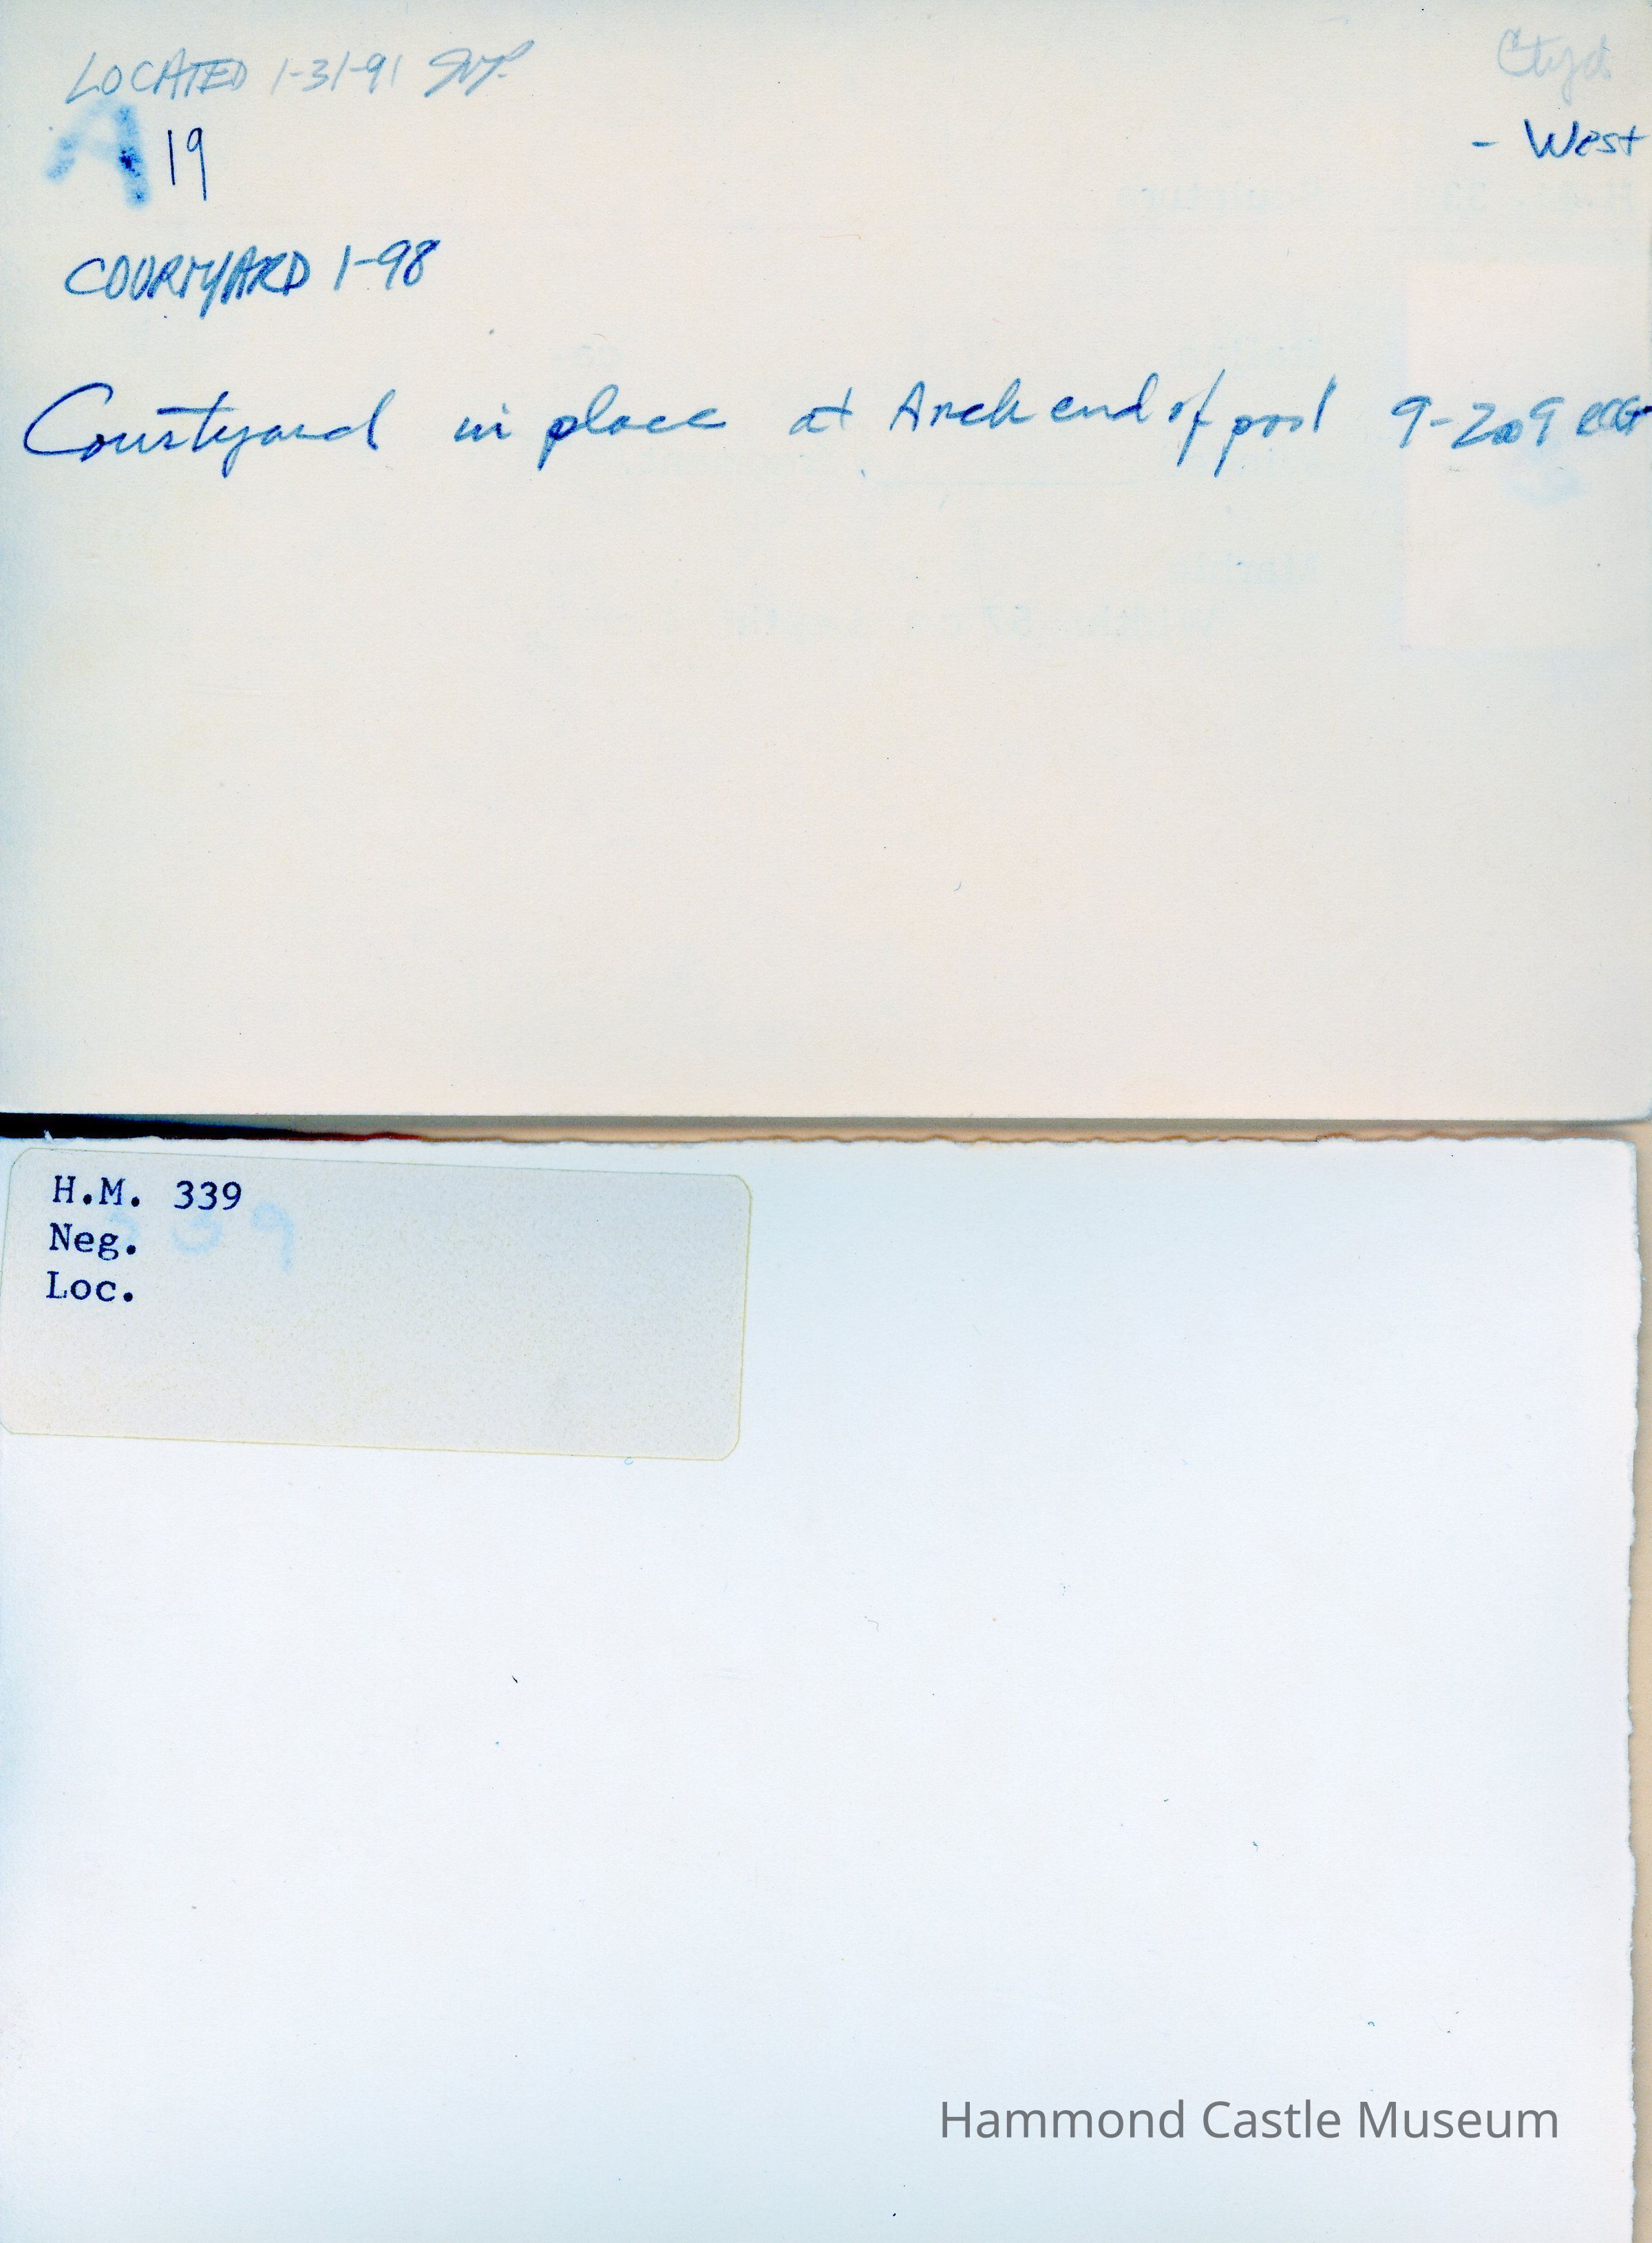 LOCATED 1-31-91
Ctyd
- West
A 19
COURTYARD 1-98
Courtyard in place at Arch end of pool 9-2009
H.M. 339
Neg.
Loc.
Hammond Castle Museum